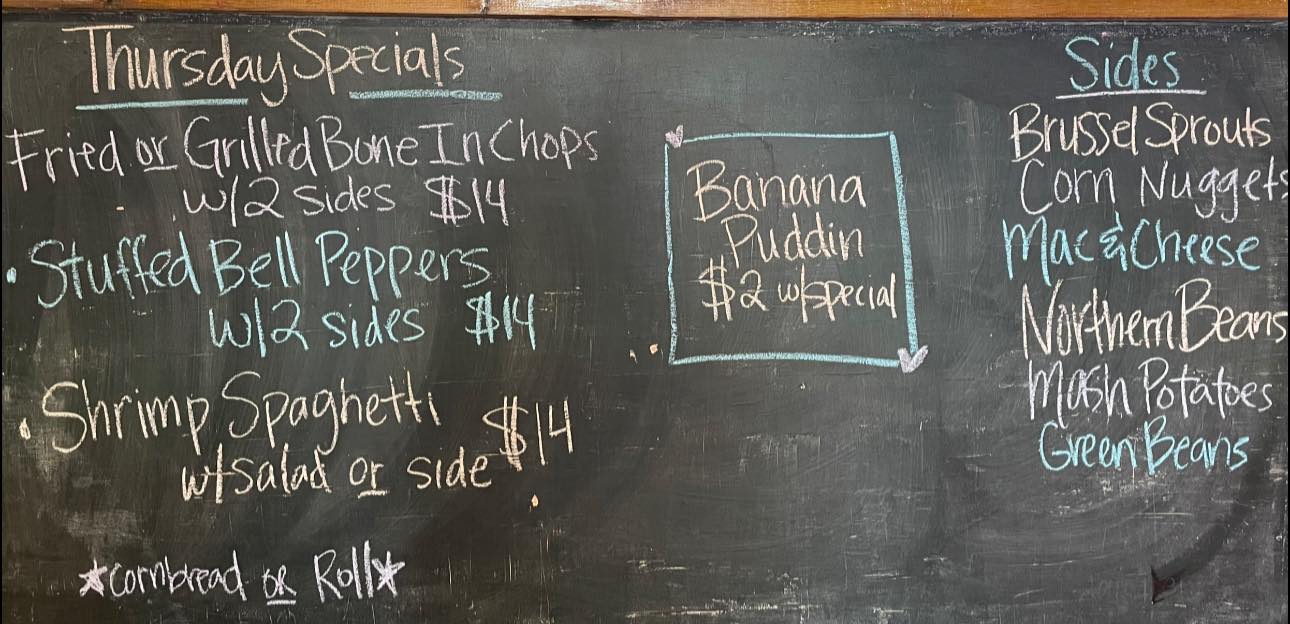 Thursday Specials
Fried or Grilled Bone In Chops
w/2 sides $14
• Stuffed Bell Peppers
w/2 sides $14
• Shrimp Spaghetti $14
w/salad or side
*Cornbread OR Roll*
Banana
Puddin
$2 w/special
Sides
Brussel Sprouts
Corn Nuggets
Mac & Cheese
Northern Beans
Mash Potatoes
Green Beans